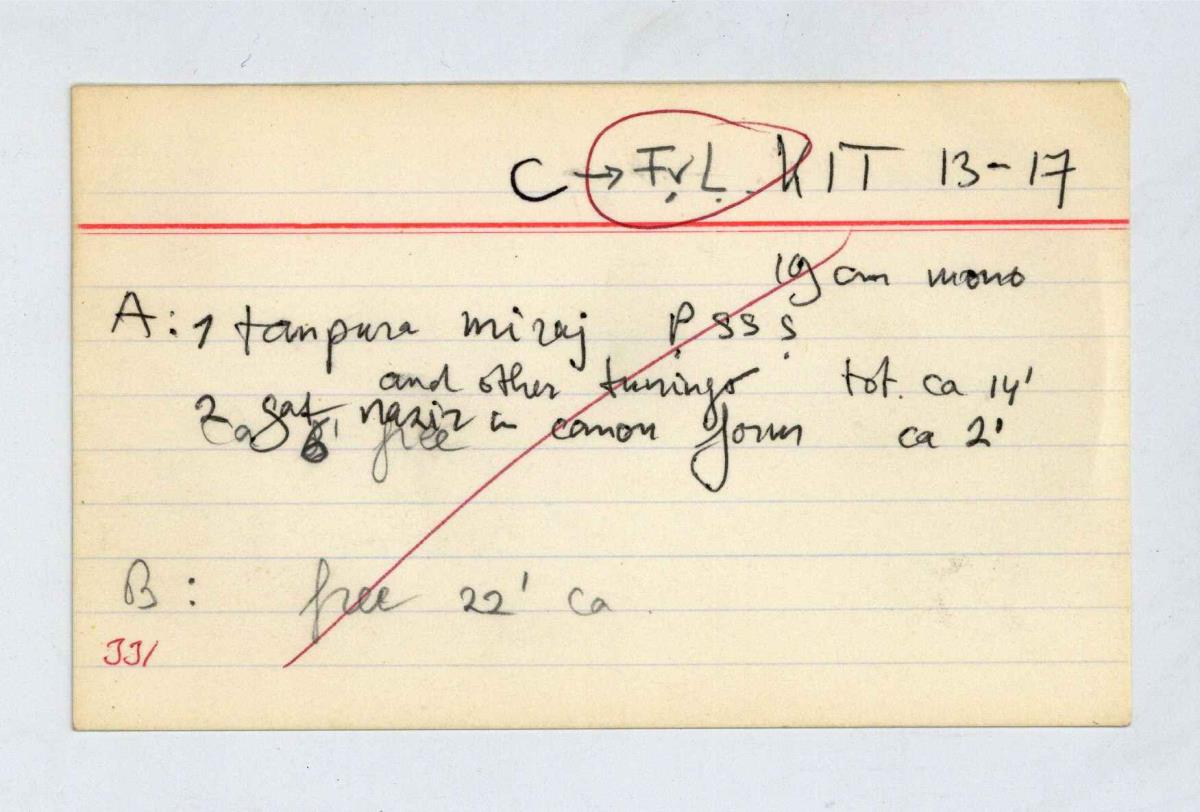 C → FvL. KIT 13-17
19 cm mono
A: 1 tanpura miraj P̣ S S Ṣ
and other tunings tot. ca 14'
2 gat nazir in canon form ca 2'
ca 6' free
B: free 22' ca